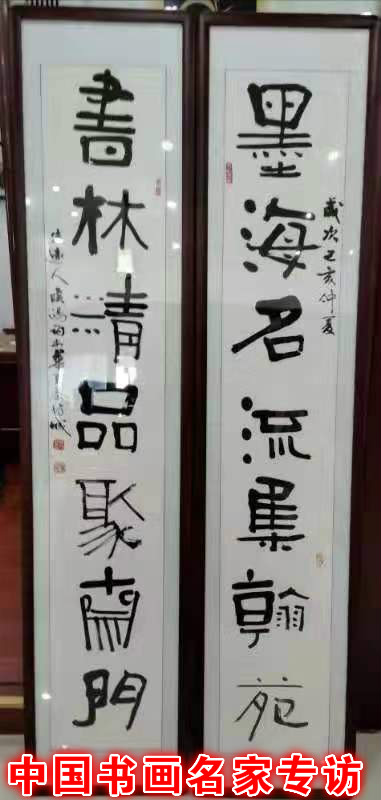 墨海名流集翰苑
歲次己亥仲夏
書林精品聚南門
中国书画名家专访